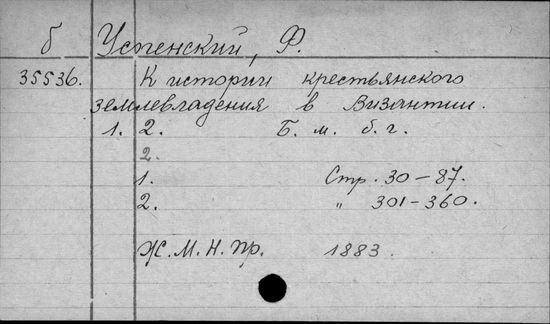 б Успенский, Ф.
35536. К истории крестьянского
землевладения в Византии.
1. 2. Б. м. б. г.
2.
1. Стр. 30-87.
2. " 301-360.
Ж. М. Н. Пр. 1883.